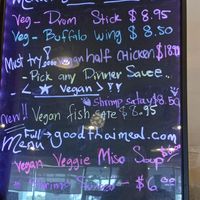 Veg-Drom Stick $8.95
Veg-Buffalo wing $8.50
Must try Vegan half CHICKEN $18.90
-Pick any Dinner Sauce..
Vegan
Shrimp satay $8.50
New!! Vegan fish sate $8.95
Full → goodthaimeal.com
Menu
Vegan Veggie Miso Soup
$6